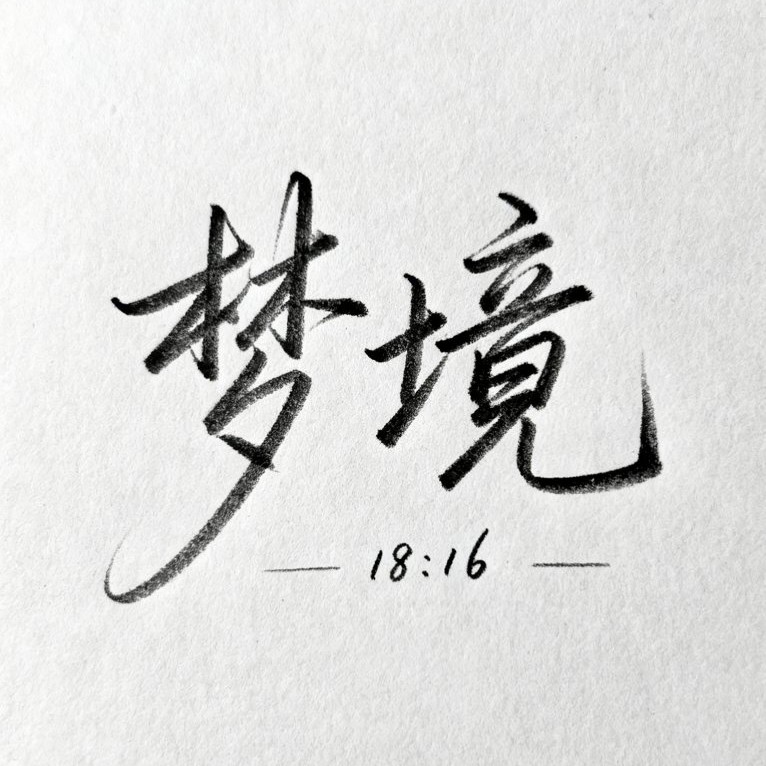 梦境
18:16